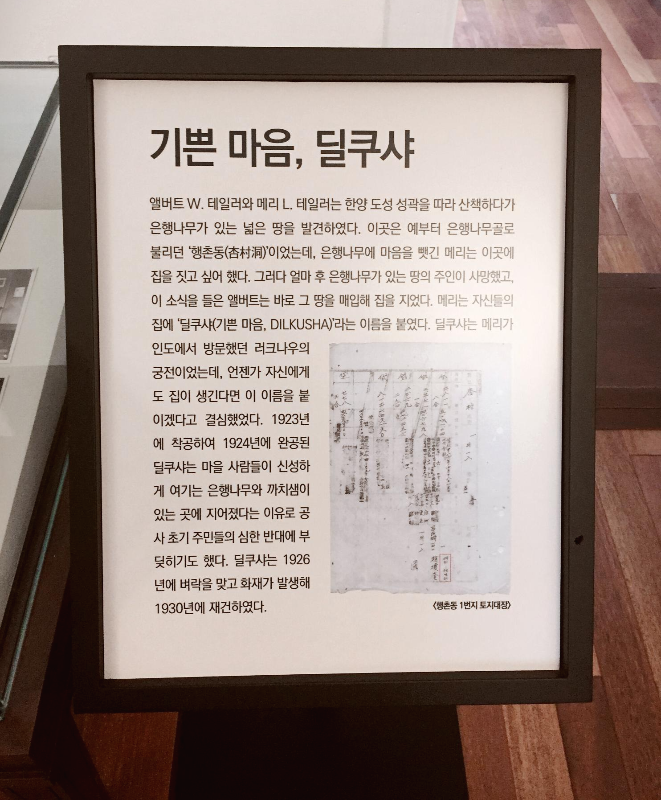 기쁜 마음, 딜쿠샤
앨버트 W. 테일러와 메리 L. 테일러는 한양 도성 성곽을 따라 산책하다가
은행나무가 있는 넓은 땅을 발견하였다. 이곳은 예부터 은행나무골로
불리던 ‘행촌동(杏村洞)’이었는데, 은행나무에 마음을 뺏긴 메리는 이곳에
집을 짓고 싶어 했다. 그러다 얼마 후 은행나무가 있는 땅의 주인이 사망했고,
이 소식을 들은 앨버트는 바로 그 땅을 매입해 집을 지었다. 메리는 자신들의
집에 ‘딜쿠샤(기쁜 마음, DILKUSHA)’라는 이름을 붙였다. 딜쿠샤는 메리가
인도에서 방문했던 러크나우의
궁전이었는데, 언젠가 자신에게
도 집이 생긴다면 이 이름을 붙
이겠다고 결심했었다. 1923년
에 착공하여 1924년에 완공된
딜쿠샤는 마을 사람들이 신성하
게 여기는 은행나무와 까치샘이
있는 곳에 지어졌다는 이유로 공
사 초기 주민들의 심한 반대에 부
딪히기도 했다. 딜쿠샤는 1926
년에 벼락을 맞고 화재가 발생해
1930년에 재건하였다.
《행촌동 1번지 토지대장》